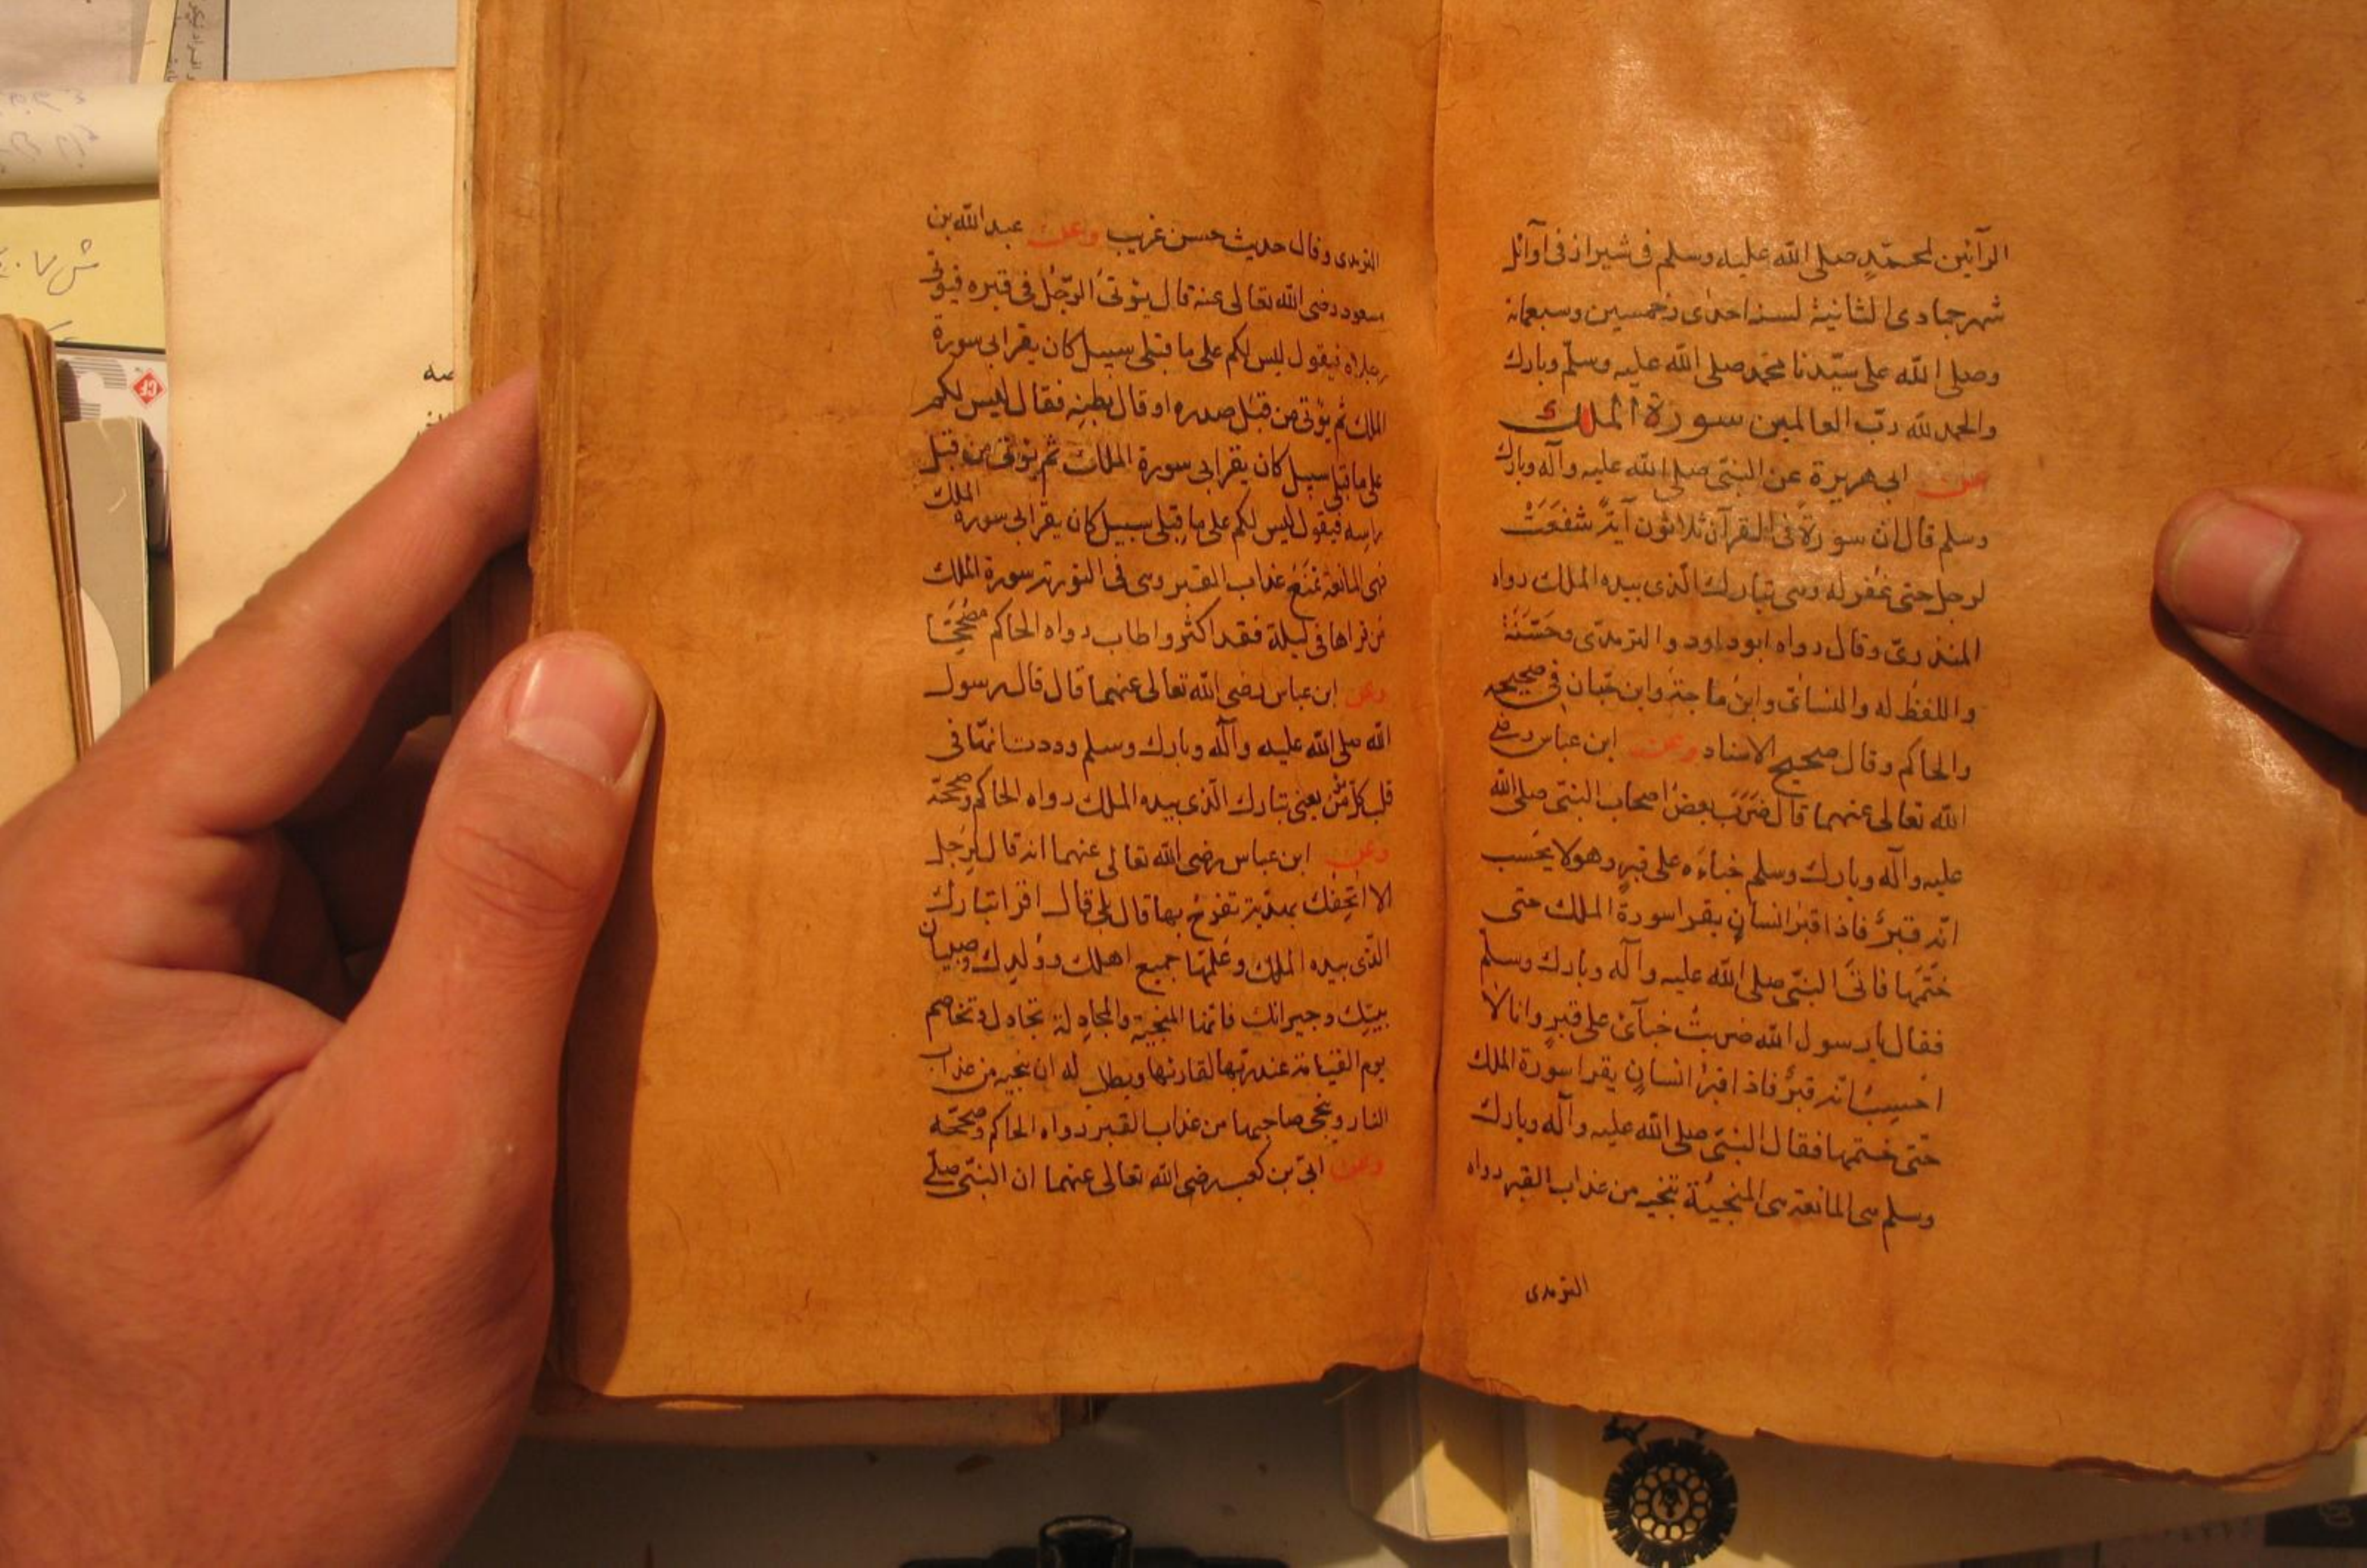 الرآئين لمحمّدٍ صلى الله عليه وسلم فى شيراز فى اوآئل
شهر جمادى الثانية لسنة احدى وخمسين وسبعمائة
وصلى الله على سيّدنا محمد صلى الله عليه وسلّم وبارك
والحمد لله ربّ العالمين سورة الملك
عن ابى هريرة عن النبىّ صلى الله عليه وآله وبارك
وسلم قال ان سورةً فى القرآن ثلاثون آيةً شفعَتْ
لرجل حتى غُفر له وهى تبارك الّذى بيده الملك رواه
المنذرىّ وقال رواه ابو داود والترمذىّ وحَسَّنَهُ
واللفظ له والنسائىّ وابن ماجة وابن حبّان فى صحيحه
والحاكم وقال صحيح الاسناد وعن ابن عباس رضى
الله تعالى عنهما قال ضَرَبَ بعضُ اصحاب النبىّ صلى الله
عليه وآله وبارك وسلم خباءَه على قبرٍ وهو لا يحَسب
انّه قبرٌ فاذا قبرُ انسانٍ يقرا سورة الملك حتى
ختَمَها فاتَى النبىّ صلى الله عليه وآله وبارك وسلّم
فقال يا رسول الله ضربتُ خبآئى على قبرٍ وانا لا
احسِبُ انّه قبرٌ فاذا قبرُ انسانٍ يقرا سورة الملك
حتّى ختمها فقال النبىّ صلى الله عليه وآله وبارك
وسلم هى المانعة هى المنجيَة تنجيه من عذاب القبر رواه
الترمذى
الترمذى وقال حديث حسن غريب وعن عبد الله بن
مسعود رضى الله تعالى عنه قال يؤتىُ الرّجُل فى قبره فيؤتى
رجلاه فيقول ليس لكم على ما قبلى سبيل كان يقرا بى سورة
الملك ثم يؤتى من قبَل صدره او قال بطنِه فقال ليس لكم
على ما قبلى سبيل كان يقرا بى سورة الملك ثم يؤتى من قبَل
راسِه فيقول ليس لكم على ما قِبلى سبيل كان يقرا بى سورة الملك
فهى المانعة تمنَعُ عذاب القبر وهى فى التورية سورة الملك
من قراها فى ليلة فقد اكثر واطاب رواه الحاكم مُصَحِّحًا
وعن ابن عباس رضى الله تعالى عنهما قال قال رسول
الله صلى الله عليه وآله وبارك وسلم وددت انهّا فى
قلب كلّ مؤمن يعنى تبارك الّذى بيده الملك رواه الحاكم وصححّه
وعن ابن عباس رضى الله تعالى عنهما انه قال لرَجل
الا اتحِفك بهديّة تفرَحُ بها قال بلى قال اقرا تبارك
الّذى بيده الملك وعَلّمها جميع اهلك ووُلدِك وصبيان
بيتِك وجيرانك فانّها المنجيَة والمجادِلة تجادِل وتخاصم
يوم القيامة عند ربّها لقارئها ويطلب له ان ينجيه من عذاب
النار وينجى صاحبها من عذاب القبر رواه الحاكم وصححّه
وعن ابىّ بن كعب رضى الله تعالى عنهما ان النبىّ صلّى